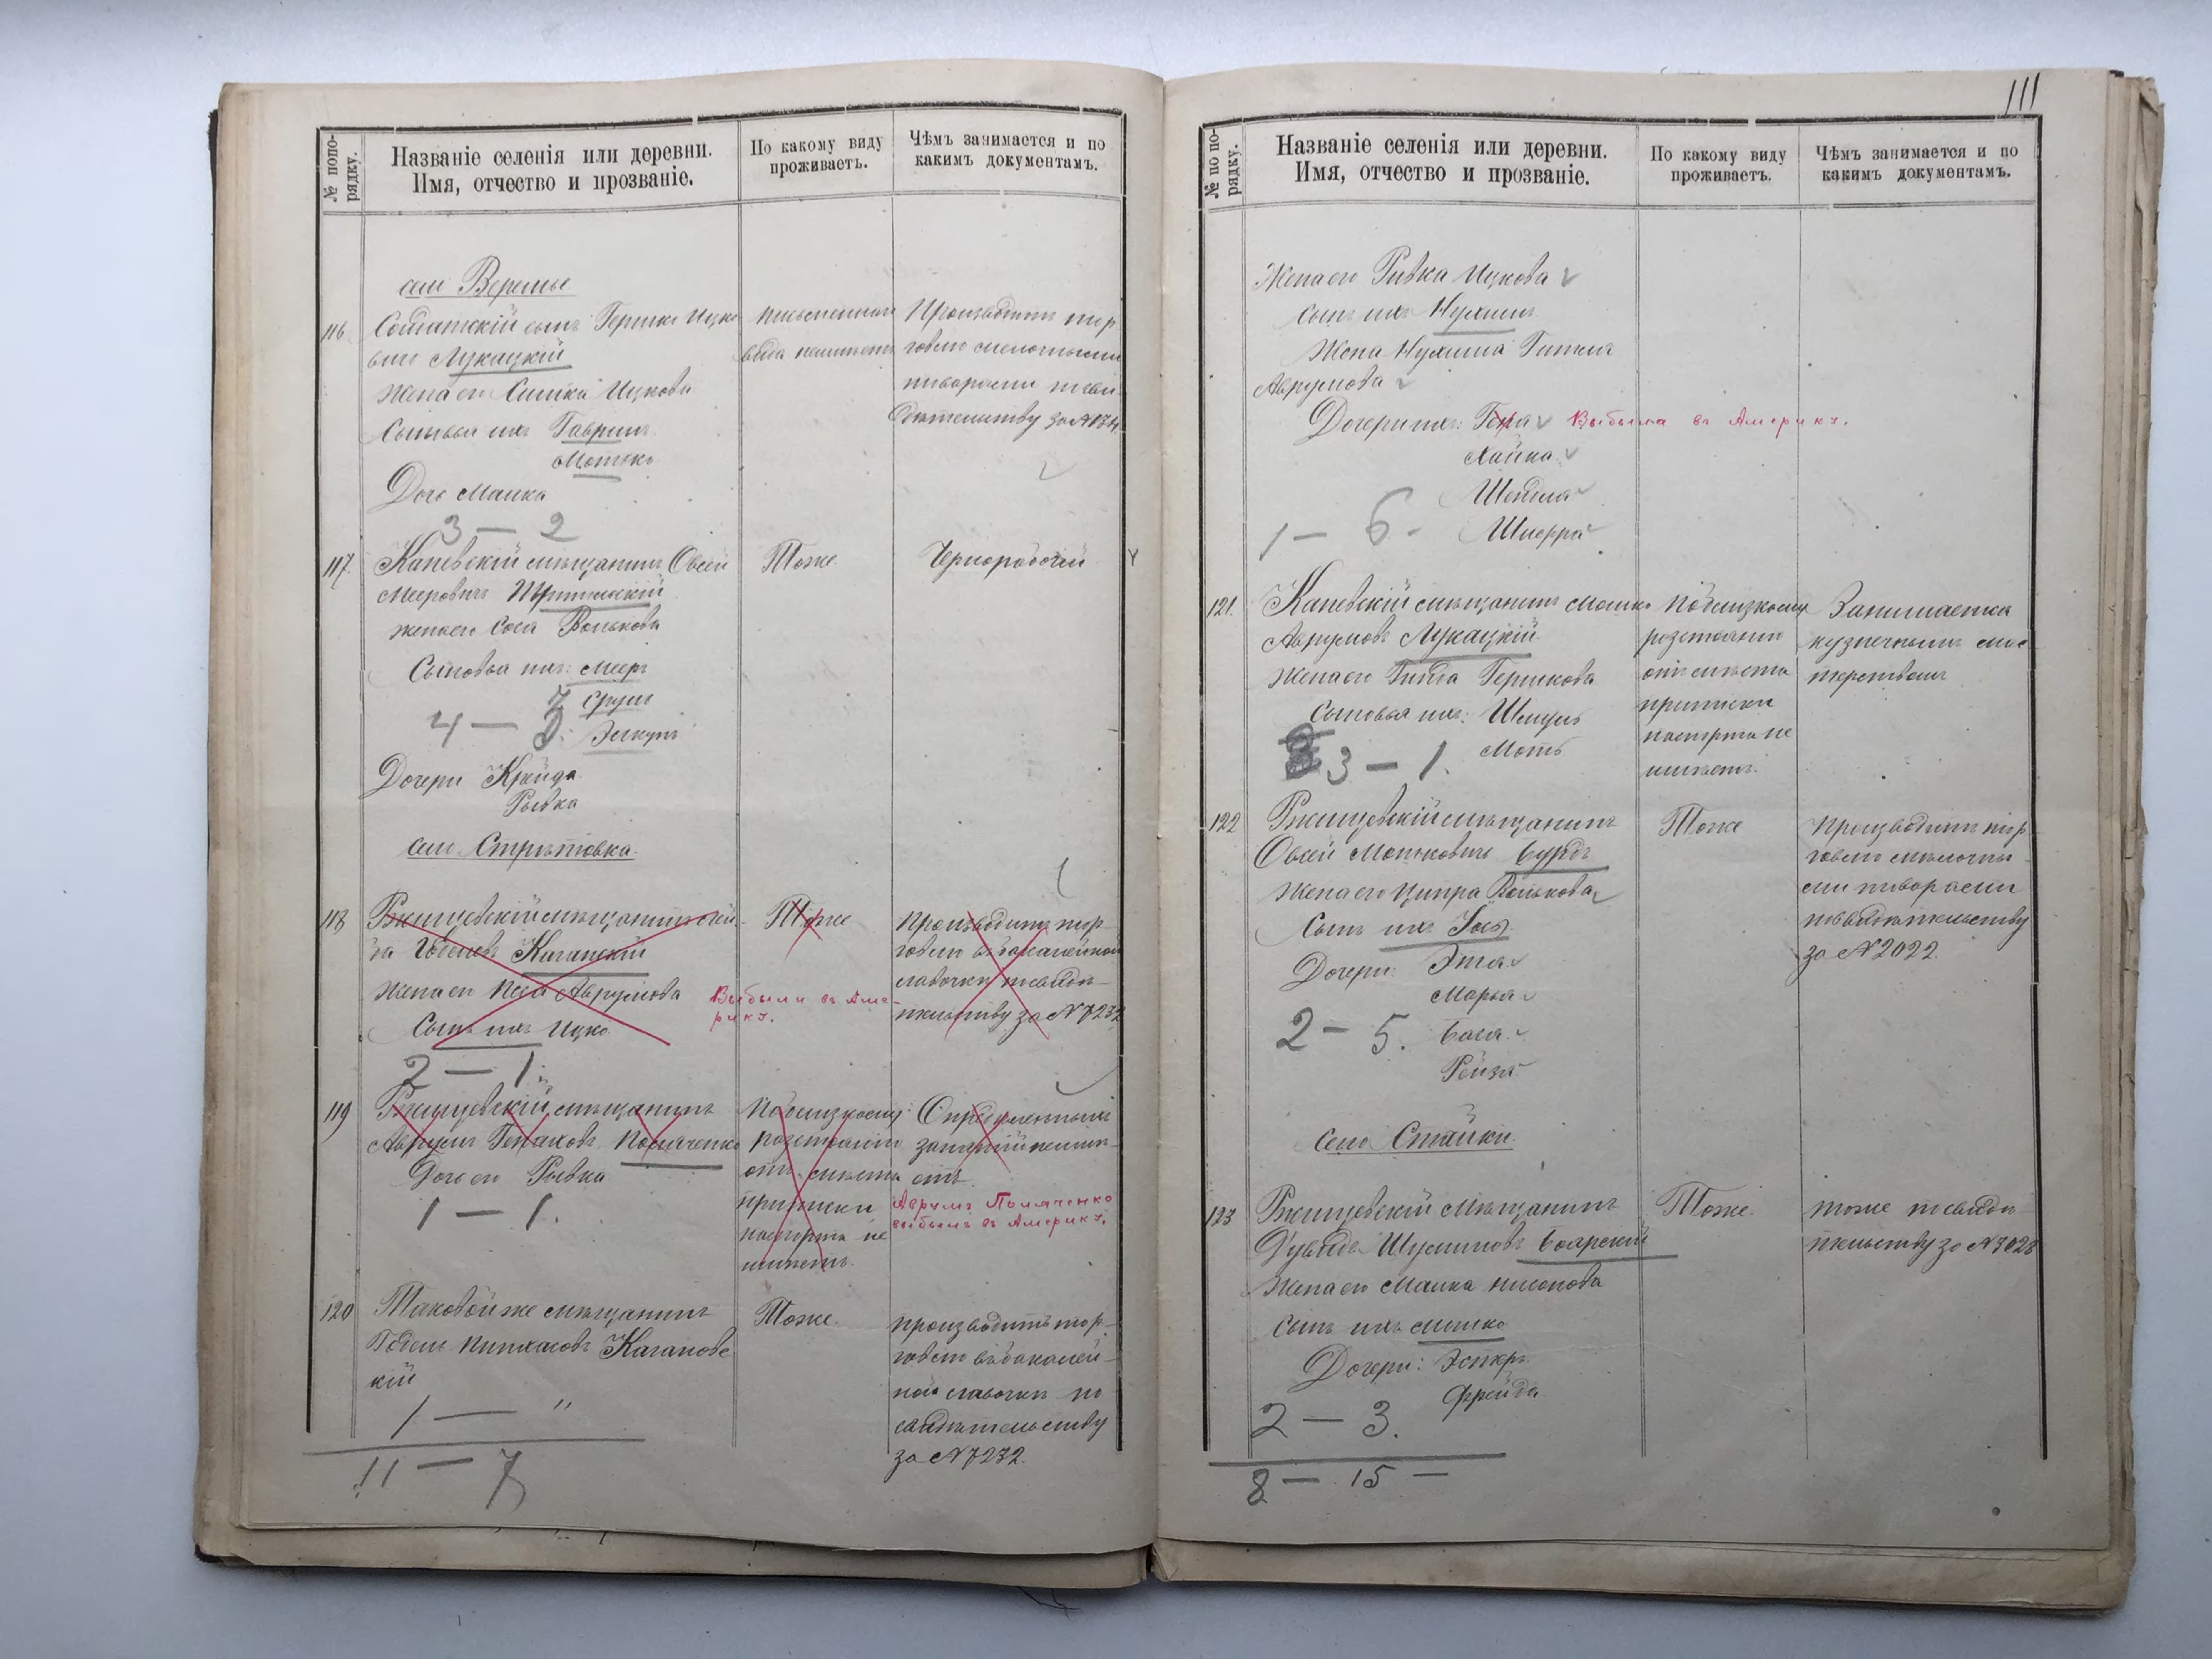 № по по-
рядку.
Названіе селенія или деревни.
Имя, отчество и прозваніе.
По какому виду
проживаетъ.
Чѣмъ занимается и по
какимъ документамъ.
село Веремье
116
Солдатскій сынъ Гершко Ицко
вичъ Лукацкій
жена его Симка Ицкова
Сыновья ихъ Гаврилъ
Мотько
Дочь Малка
3 — 2
письменнаго
вида неимеетъ
Производитъ тор
говлю мелочными
товарами по сви
дѣтельству за №
117
Каневскій мѣщанинъ Овсей
Мееровичъ
жена его Сося Волькова
Сыновья ихъ: Мееръ
Срулъ
4 — 3
Дочери Крейца
Рывка
Тоже
Чернорабочій
село Стрѣтовка
118
Ржищевскій мѣщанинъ
Каганскій
жена его Песя Аврумова
Сынъ ихъ Ицко
2 — 1.
Тоже
Выбыли въ Аме-
рику.
Производитъ тор
говлю въ бакалейной
лавочки по свидѣ-
тельству за № 7232
119
Ржищевскій мѣщанинъ
Аврумъ Генаховъ Поляченко
Дочь его Рывка
1 — 1.
По близкому
розстоянію
отъ мѣста
приписки
паспорта не
имѣетъ.
Опредѣленныхъ
занятій неимѣ-
етъ
Аврумъ Поляченко
выбылъ въ Америку.
120
Таковой же мѣщанинъ
Годель Пинхасовъ Каганов
кій
1 — "
Тоже.
производитъ тор-
говлю въ бакалей-
ной лавочки по
свидѣтельству
за № 7232.
11 — 7
111
№ по по-
рядку.
Названіе селенія или деревни.
Имя, отчество и прозваніе.
По какому виду
проживаетъ.
Чѣмъ занимается и по
какимъ документамъ.
Жена его Ривка Ицкова
Сынъ ихъ Нухимъ
Жена Нухима Гитля
Аврумова
Дочери ихъ: Геня Выбыла въ Америку.
Хайка
Шейдля
Шперра
1 — 6.
121.
Каневскій мѣщанинъ Мошко
Аврумовъ Лукацкій
Жена его Гершкова
Сыновья ихъ: Шмуль
Моть
3 — 1.
По близкому
розстоянію
отъ мѣста
приписки
паспорта не
имѣетъ.
Занимается
кузнечнымъ мас
терствомъ
122
Ржищевскій мѣщанинъ
Овсей Мотьковичъ Бурдъ
Жена его Ципра Волькова
Сынъ ихъ
Дочери: Этля
Марья
Бася
Рейзя
2 — 5.
Тоже
Производитъ тор
говлю мѣлочны
ми товарами
по свидѣтельству
за № 2022.
Село Стайки.
123
Ржищевскій Мѣщанинъ
Дувидъ Шулимовъ Боярскій
Жена его Малка
Сынъ ихъ Мошко
Дочери: Эстеръ
Фрейда
2 — 3.
Тоже.
тоже по свидѣ
тельству за № 3028
8 — 15 —